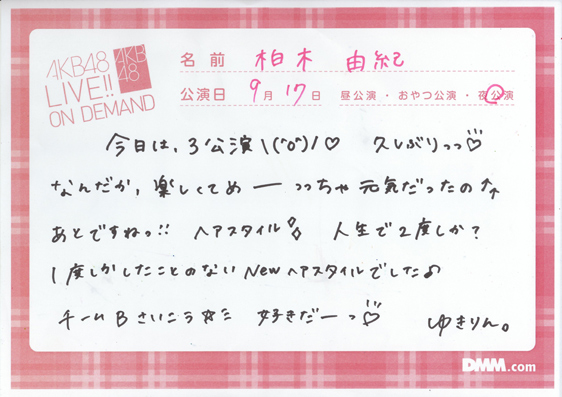 AKB48
LIVE!!
ON DEMAND
AKB
48
名前 柏木 由紀
公演日 9月17日 昼公演・おやつ公演・夜公演
今日は、3公演\(^o^)/♡ 久しぶりっっ♡
なんだか、楽しくてめーっっちゃ元気だったの↑↑
あとですねっ!! ヘアスタイル 人生で2度しか?
1度しかしたことのないNewヘアスタイルでした♪
チームBさいこう☆ミ 好きだーっ♡ ゆきりん。
DMM.com